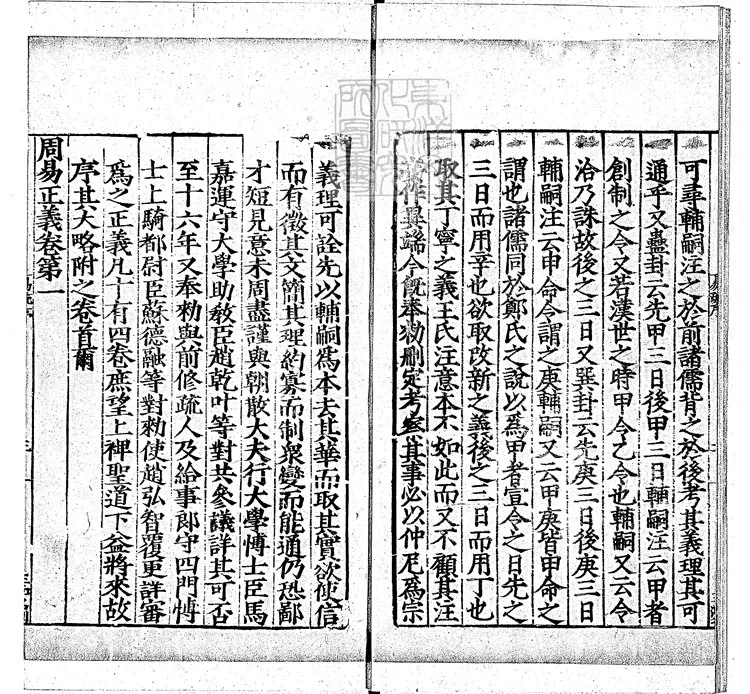 可尋輔嗣注之於前諸儒背之於後考其義理其可
通乎又蠱卦云先甲三日後甲三日輔嗣注云甲者
創制之令又若漢世之時甲令乙令也輔嗣又云令
洽乃誅故後之三日又巽卦云先庚三日後庚三日
輔嗣注云申命令謂之庚輔嗣又云甲庚皆申命之
謂也諸儒同於鄭氏之說以爲甲者宣令之日先之
三日而用辛也欲取改新之義後之三日而用丁也
取其丁寧之義王氏注意本不如此而又不顧其注
作異端今旣奉勑刪定考察其事必以仲尼爲宗
義理可詮先以輔嗣爲本去其華而取其實欲使信
而有徵其文簡其理約寡而制衆變而能通仍恐鄙
才短見意未周盡謹與朝散大夫行大學博士臣馬
嘉運守大學助敎臣趙乾叶等對共參議詳其可否
至十六年又奉勑與前修疏人及給事郎守四門博
士上騎都尉臣蘇德融等對勑使趙弘智覆更詳審
爲之正義凡十有四卷庶望上裨聖道下益將來故
序其大略附之卷首爾
周易正義卷第一